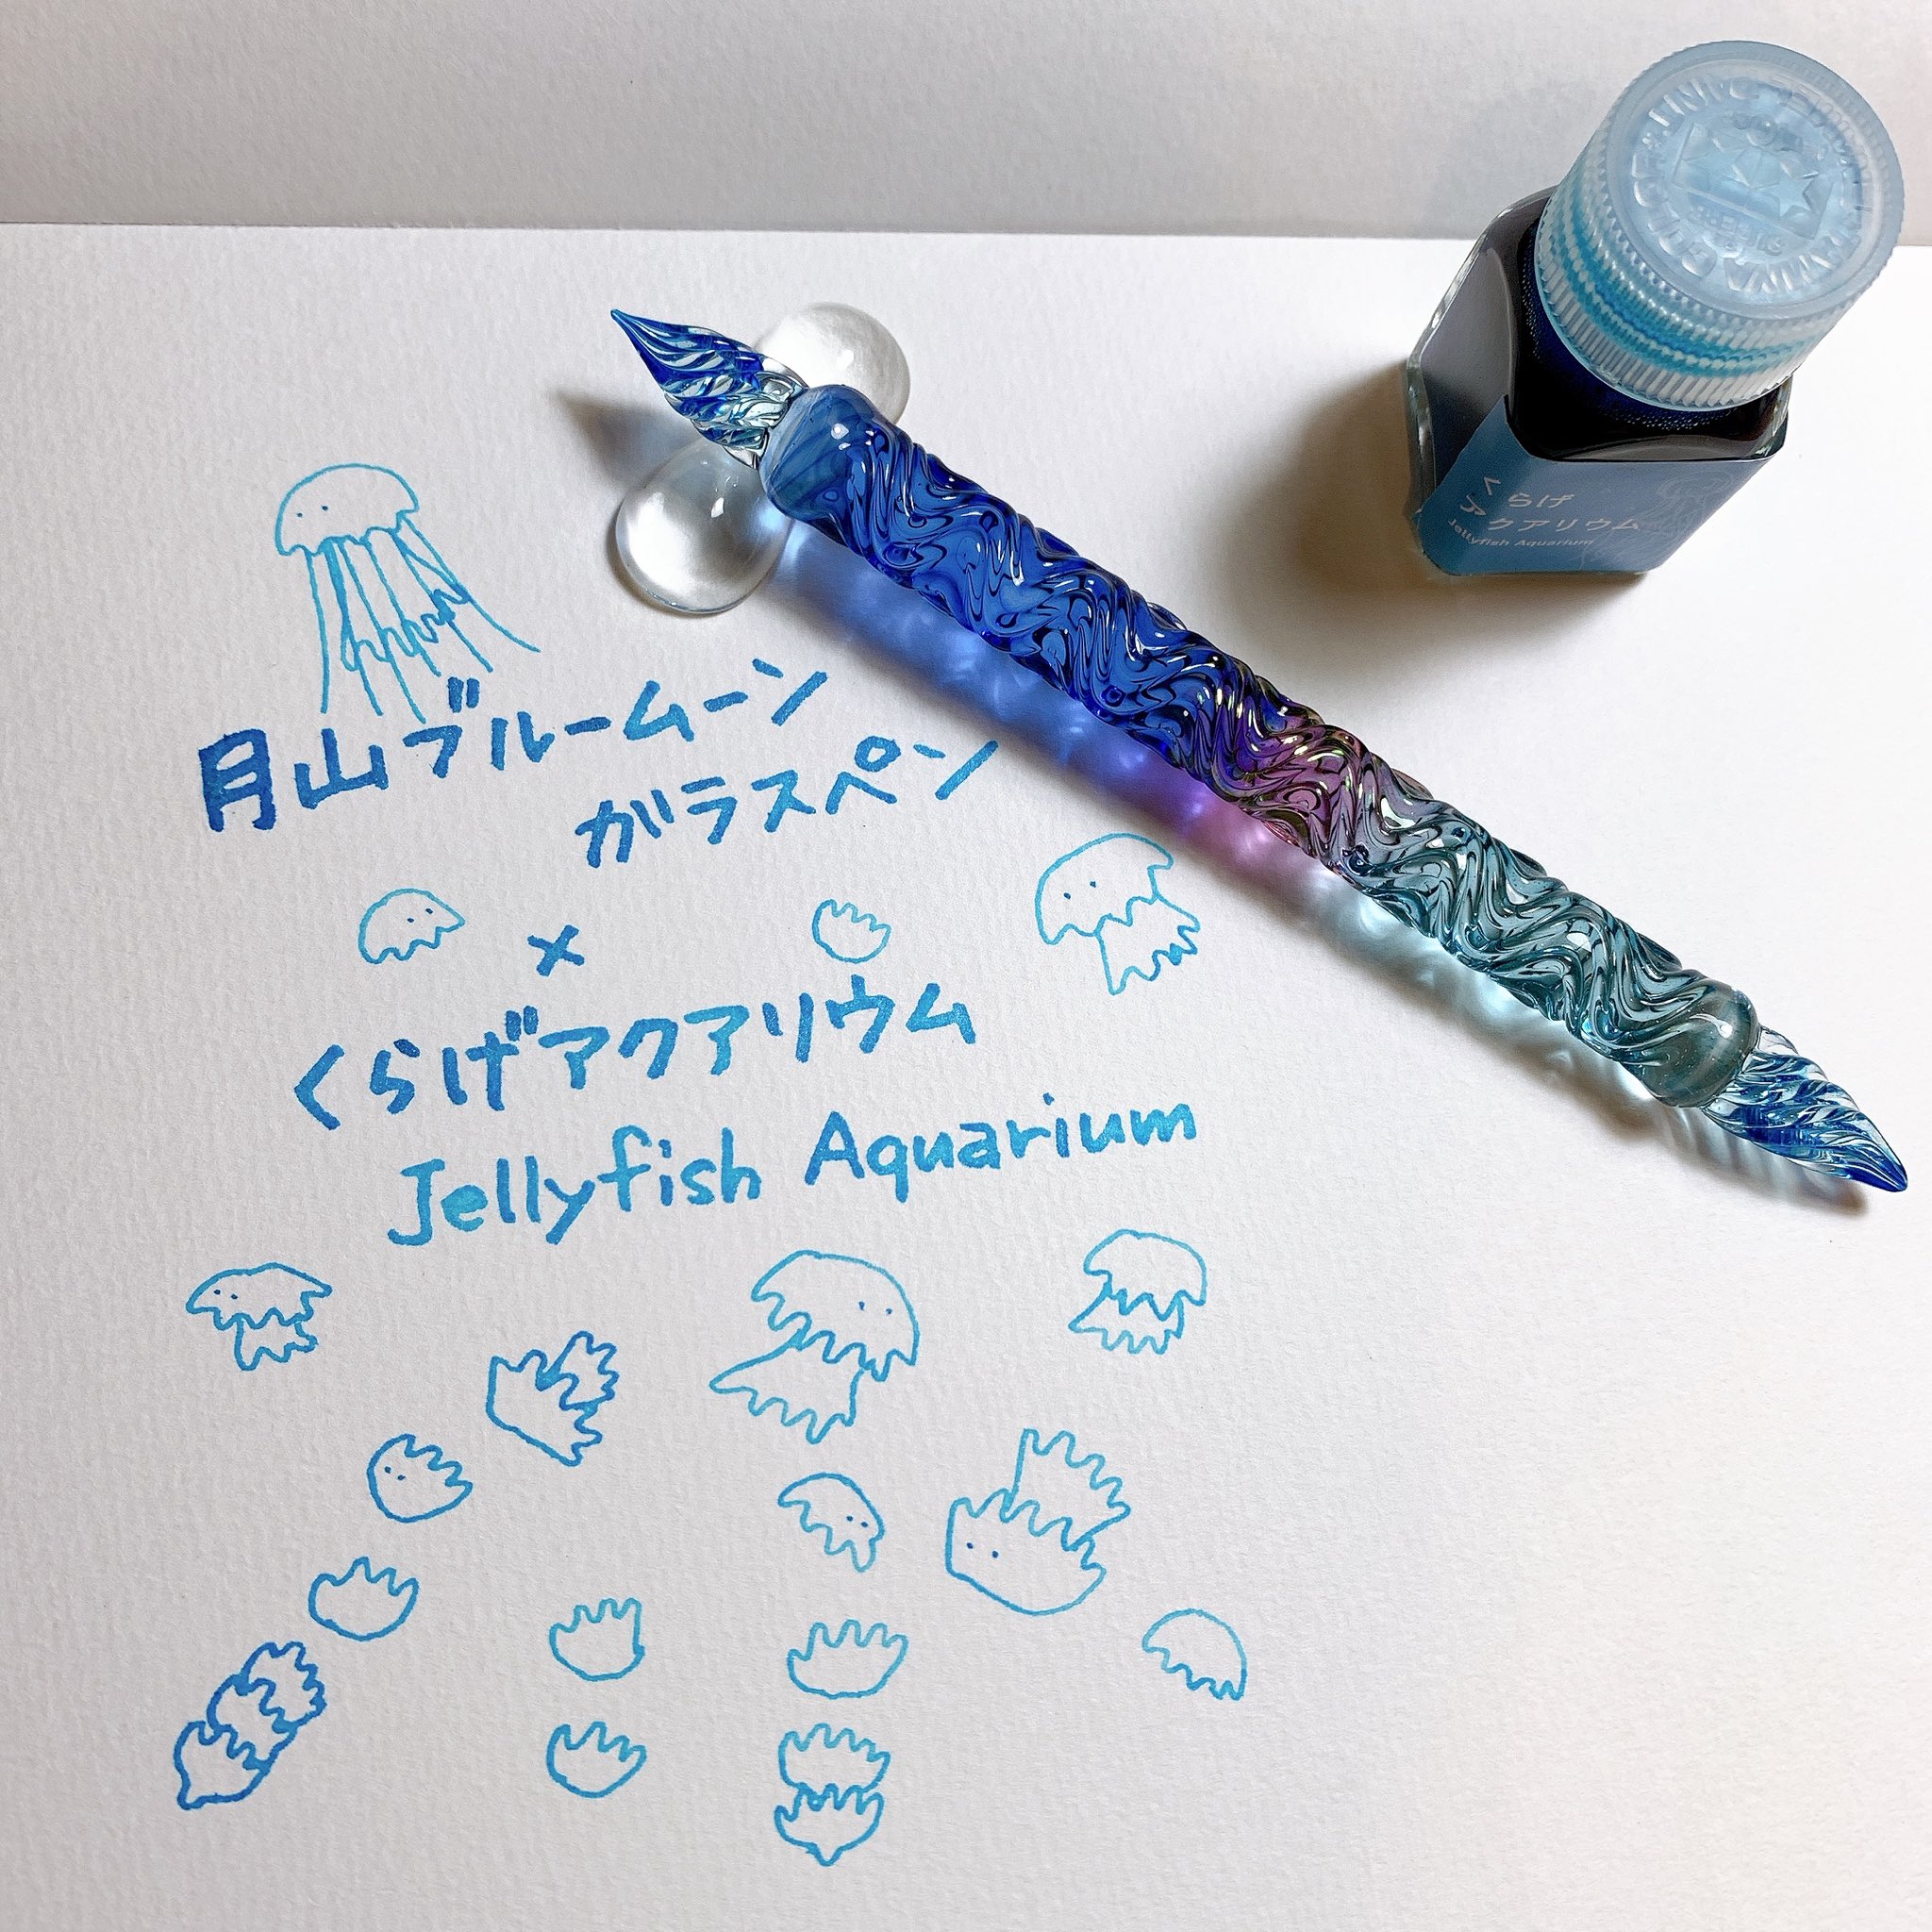 月山ブルームーン
ガラスペン
×
くらげアクアリウム
Jellyfish Aquarium
くらげ
アクアリウム
Jellyfish Aquarium